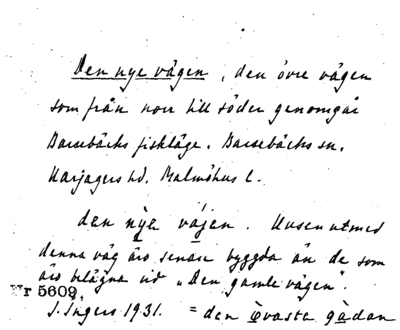 Den nye vägen, den övre vägen
som från norr till söder genomgår
Barsebäcks fiskläge. Barsebäcks sn.
Harjagers hd. Malmöhus l.
den nye vájen. Husen utmed
denna väg äro senare byggda än de som
äro belägna vid "Den gamle vägen".
Nr 5609
I. Ingers 1931. = den övasta gâdan